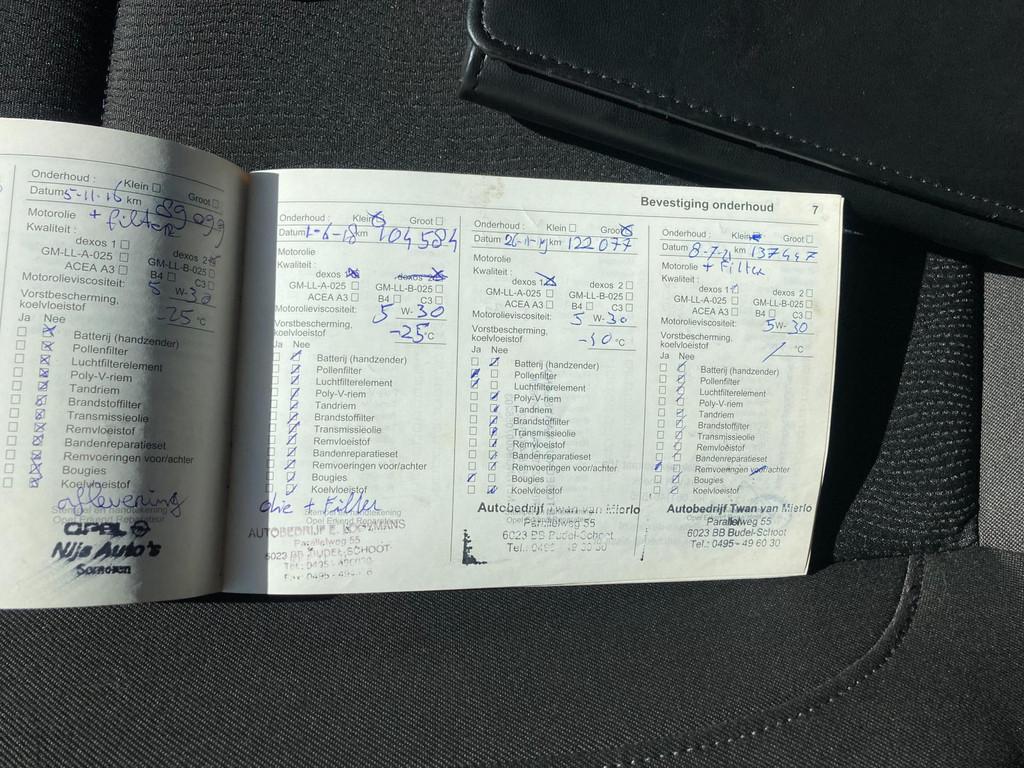 Onderhoud : Klein Groot
Datum 5-11-16 km 89099
Motorolie + filter
Kwaliteit :
dexos 1 dexos 2
GM-LL-A-025 GM-LL-B-025
ACEA A3 B4 C3
Motorolieviscositeit: 5 W- 30
Vorstbescherming,
koelvloeistof -25 °C
Ja Nee
Batterij (handzender)
Pollenfilter
Luchtfilterelement
Poly-V-riem
Tandriem
Brandstoffilter
Transmissieolie
Remvloeistof
Bandenreparatieset
Remvoeringen voor/achter
Bougies
Koelvloeistof
aflevering
OPEL
Nijs Auto's
Someren
Bevestiging onderhoud 7
Onderhoud : Klein Groot
Datum 1-6-18 km 104584
Motorolie
Kwaliteit :
dexos 1 dexos 2
GM-LL-A-025 GM-LL-B-025
ACEA A3 B4 C3
Motorolieviscositeit: 5 W- 30
Vorstbescherming,
koelvloeistof -25 °C
Ja Nee
Batterij (handzender)
Pollenfilter
Luchtfilterelement
Poly-V-riem
Tandriem
Brandstoffilter
Transmissieolie
Remvloeistof
Bandenreparatieset
Remvoeringen voor/achter
Bougies
Koelvloeistof
olie + Filter
AUTOBEDRIJF
Parallelweg 55
6023 BB BUDEL-SCHOOT
Onderhoud : Klein Groot
Datum km 122077
Motorolie
Kwaliteit :
dexos 1 dexos 2
GM-LL-A-025 GM-LL-B-025
ACEA A3 B4 C3
Motorolieviscositeit: 5 W- 30
Vorstbescherming,
koelvloeistof °C
Ja Nee
Batterij (handzender)
Pollenfilter
Luchtfilterelement
Poly-V-riem
Tandriem
Brandstoffilter
Transmissieolie
Remvloeistof
Bandenreparatieset
Remvoeringen voor/achter
Bougies
Koelvloeistof
Autobedrijf Twan van Mierlo
Parallelweg 55
6023 BB Budel-Schoot
Tel.: 0495 - 49 60 30
Onderhoud : Klein Groot
Datum 8-7-21 km 137447
Motorolie + Filter
Kwaliteit :
dexos 1 dexos 2
GM-LL-A-025 GM-LL-B-025
ACEA A3 B4 C3
Motorolieviscositeit: 5 W- 30
Vorstbescherming,
koelvloeistof / °C
Ja Nee
Batterij (handzender)
Pollenfilter
Luchtfilterelement
Poly-V-riem
Tandriem
Brandstoffilter
Transmissieolie
Remvloeistof
Bandenreparatieset
Remvoeringen voor/achter
Bougies
Koelvloeistof
Autobedrijf Twan van Mierlo
Parallelweg 55
6023 BB Budel-Schoot
Tel.: 0495 - 49 60 30